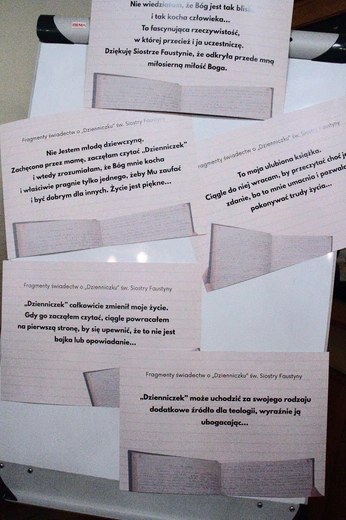 Nie wiedziałam, że Bóg jest tak blisko
i tak kocha człowieka...
To fascynująca rzeczywistość,
w której przecież i ja uczestniczę.
Dziękuję Siostrze Faustynie, że odkryła przede mną
miłosierną miłość Boga.
Fragmenty świadectw o „Dzienniczku" św. Siostry Faustyny
Nie Jestem młodą dziewczyną.
Zachęcona przez mamę, zaczęłam czytać „Dzienniczek"
i wtedy zrozumiałam, że Bóg mnie kocha
i właściwie pragnie tylko jednego, żeby Mu zaufać
i być dobrym dla innych. Życie jest piękne...
Fragmenty świadectw o „Dzienniczku" św. Siostry Faustyny
To moja ulubiona książka.
Ciągle do niej wracam, by przeczytać choć je
zdanie, bo to mnie umacnia i pozwala
pokonywać trudy życia...
Fragmenty świadectw o „Dzienniczku" św. Siostry Faustyny
„Dzienniczek" całkowicie zmienił moje życie.
Gdy go zaczęłem czytać, ciągle powracałem
na pierwszą stronę, by się upewnić, że to nie jest
bajka lub opowiadanie...
Fragmenty świadectw o „Dzienniczku" św. Siostry Faustyny
„Dzienniczek" może uchodzić za swojego rodzaju
dodatkowe źródło dla teologii, wyraźnie ją
ubogacając...